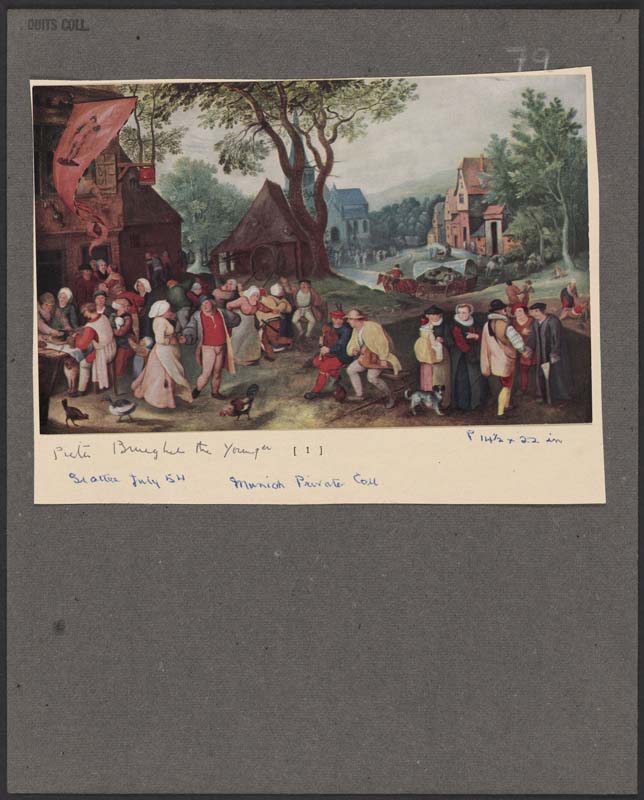 DUITS COLL.
79
Pieter Brueghel the Younger [ 1 ]
P 14½ x 22 in
Seattle July 54
Munich Private Coll